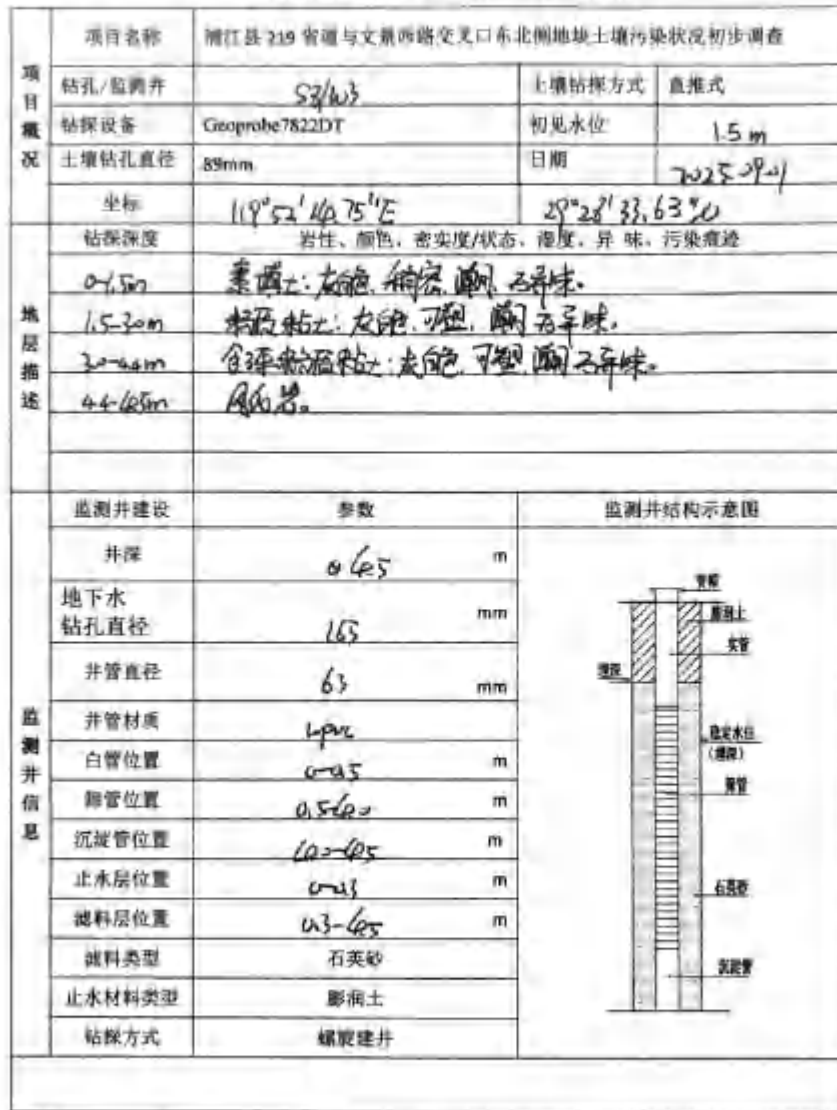 项目概况
项目名称 浦江县 219 省道与文景西路交叉口东北侧地块土壤污染状况初步调查
钻孔/监测井 S3/W3 土壤钻探方式 直推式
钻探设备 Geoprobe7822DT 初见水位 1.5 m
土壤钻孔直径 89mm 日期 2025.09.01
坐标 119°52' 75"E 29°28'33.63"N
地层描述
钻探深度 岩性、颜色、密实度/状态、湿度、异 味、污染痕迹
0-1.5m 素填土:灰白色、稍密、潮、无异味。
1.5-3.0m 粉质粘土:灰白色、可塑、潮、无异味。
3.0-4.4m 含砾粉质粘土:灰白色、可塑、潮、无异味。
4.4-4.5m 风化岩。
监测井信息
监测井建设 参数 监测井结构示意图
井深 4.5 m
地下水
钻孔直径 165 mm
井管直径 63 mm
井管材质 upvc
白管位置 0-0.5 m
筛管位置 0.5-4.0 m
沉淀管位置 4.0-4.5 m
止水层位置 0-0.3 m
滤料层位置 0.3-4.5 m
滤料类型 石英砂
止水材料类型 膨润土
钻探方式 螺旋建井
管帽
膨润土
实管
埋深
稳定水位
(埋深)
筛管
石英砂
沉淀管